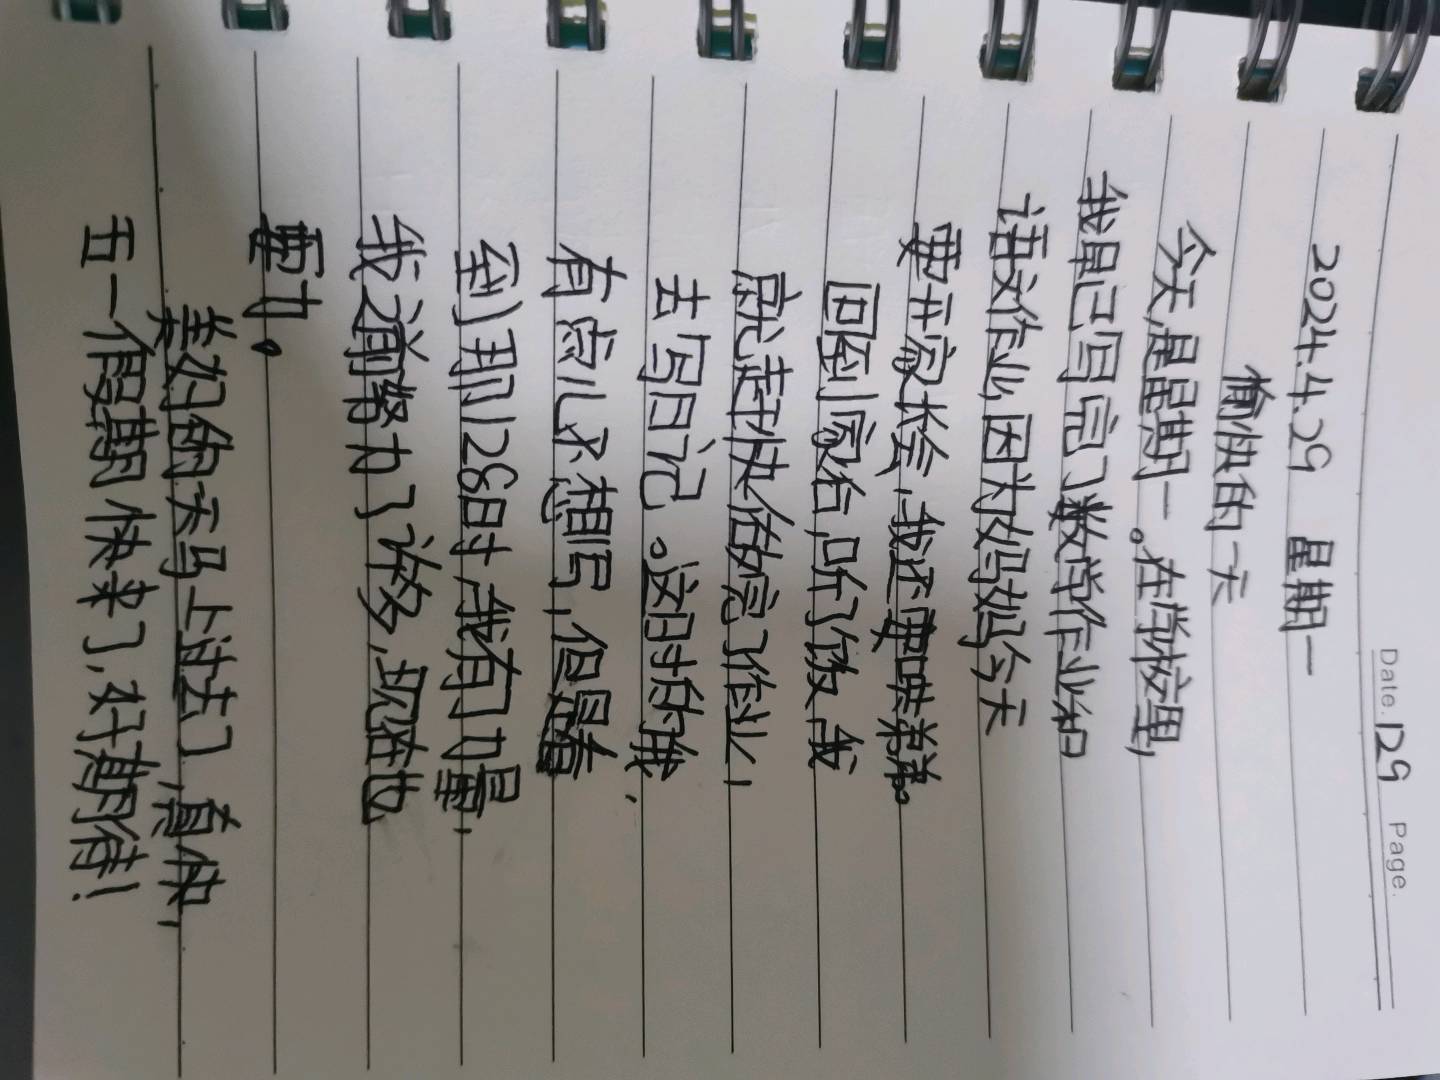 Date. 129 Page.
2024.4.29 星期一
愉快的一天
今天,是星期一。在学校里,
我是已写完了数学作业和
语文作业,因为妈妈今天
要开家长会,我还要哄弟弟。
回到家后,听了饭,我
就赶快的完了作业,
去写日记。这时的我,
有点儿不想写,但是看
到那128时,我有了力量,
我之前努力了许多,现在也
要力。
美好的天马上过去了,真快,
五一假期快来了,好期待!